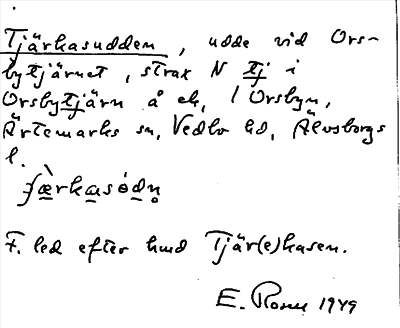 Tjärkasudden, udde vid Ors-
bytjärnet, strax N tj i
Orsbytjärn å ek, i Orsbyn,
Ärtemarks sn, Vedbo hd, Älvsborgs
l.
F. led efter hmd Tjär(e)kasen.
E. Rosell 1949